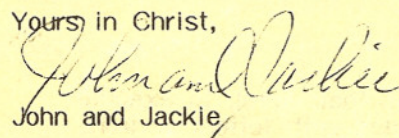 Yours in Christ,
John and Jackie
John and Jackie